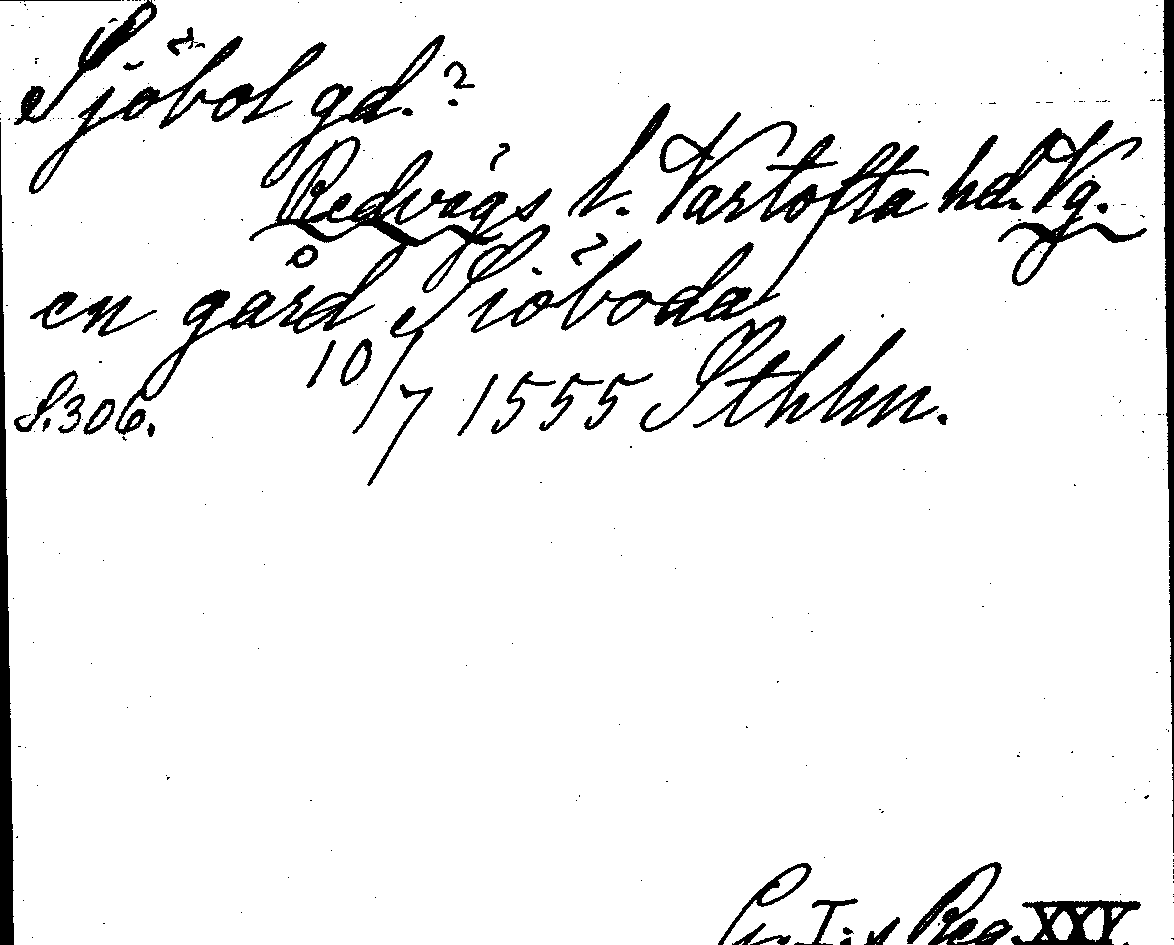 Sjöbol gd.?
Redvägs t. Vartofta hd. Vg.
en gård Siöboda
10/7 1555 Sthlm.
S. 306.
G. I:s Reg. XXV